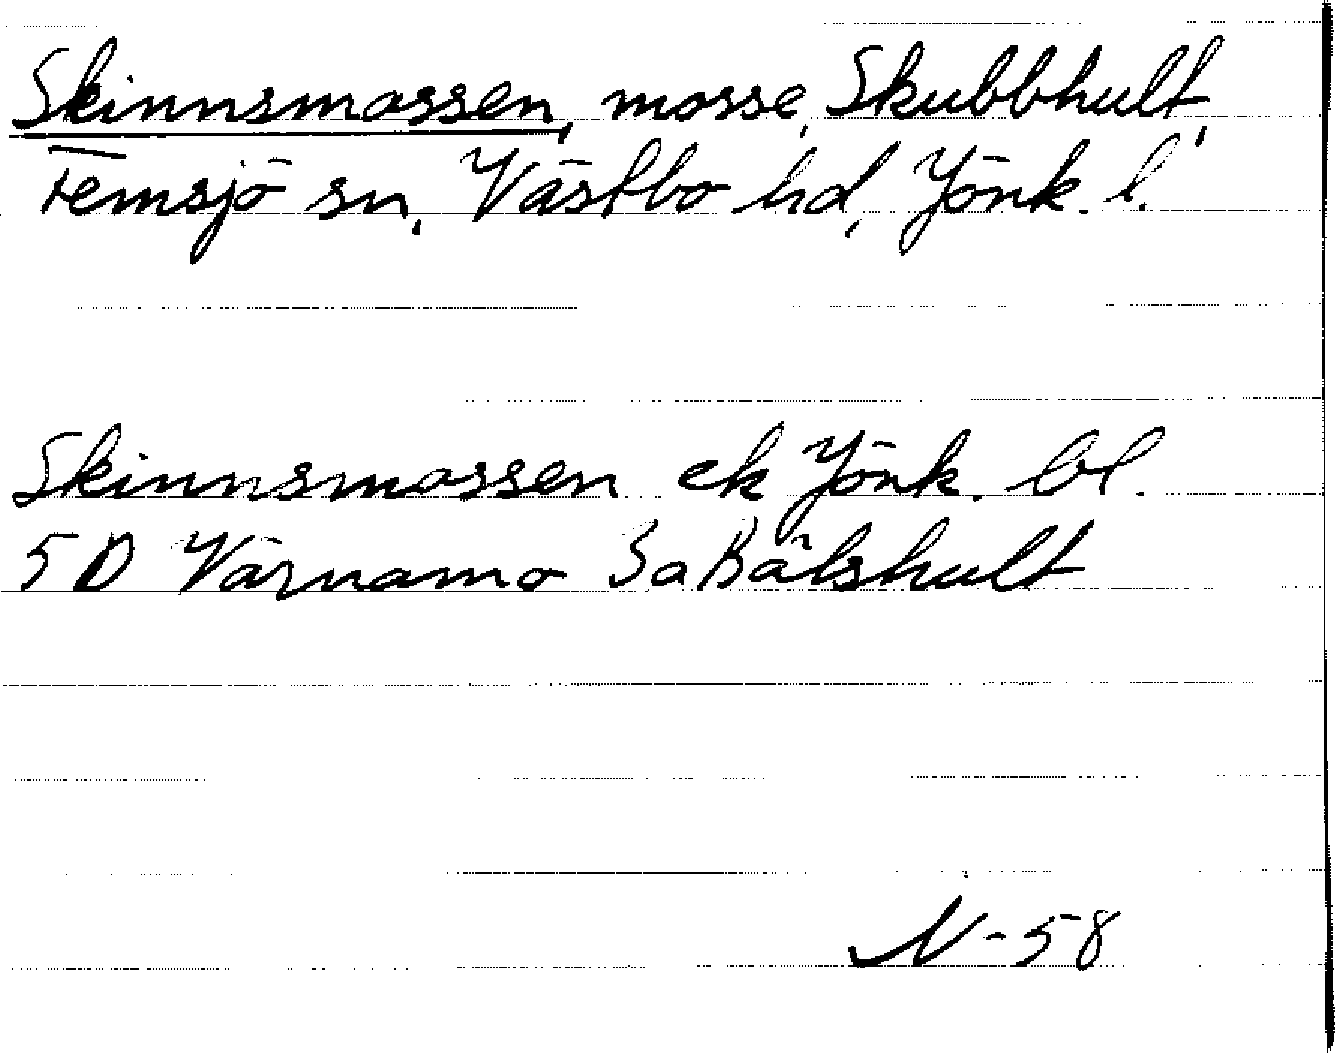 Skinnsmossen, mosse, Skubbhult,
Femsjö sn, Västbo hd, Jönk. l.
Skinnsmossen ek Jönk. bl.
5D Värnamo 3a Bälshult
N-58